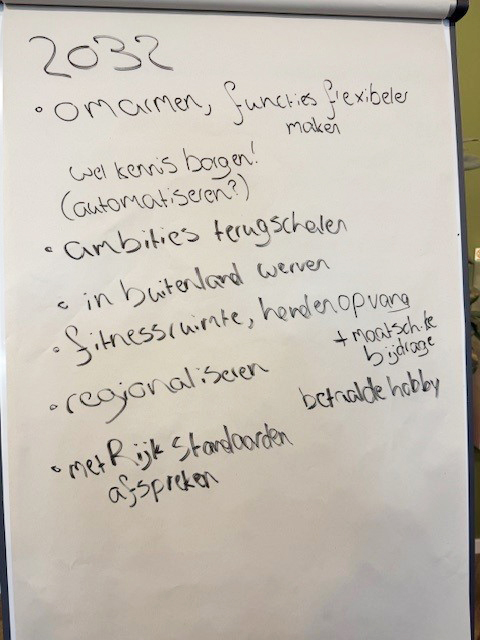 2032
• omarmen, functies flexibeler
maken
wel kennis borgen!
(automatiseren?)
• ambities terugschalen
• in buitenland werven
• fitnessruimte, hondenopvang
+ maatsch.ke
bijdrage
• regionaliseren
betaalde hobby
• met Rijk standaarden
afspreken